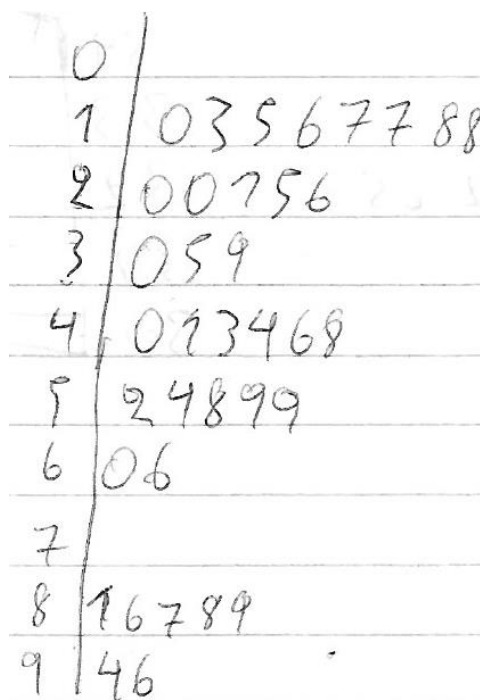 0 |
1 | 0 3 5 6 7 7 8 8
2 | 0 0 1 5 6
3 | 0 5 9
4 | 0 1 3 4 6 8
5 | 2 4 8 9 9
6 | 0 6
7 |
8 | 1 6 7 8 9
9 | 4 6